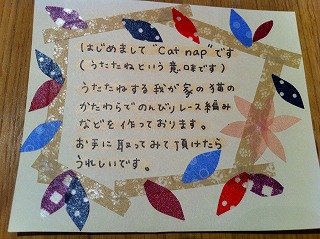 はじめまして "Cat nap" です
(うたたねという意味です)
うたたねする我が家の猫の
かたわらでのんびりレース編み
などを作っております。
お手に取ってみて頂けたら
うれしいです。